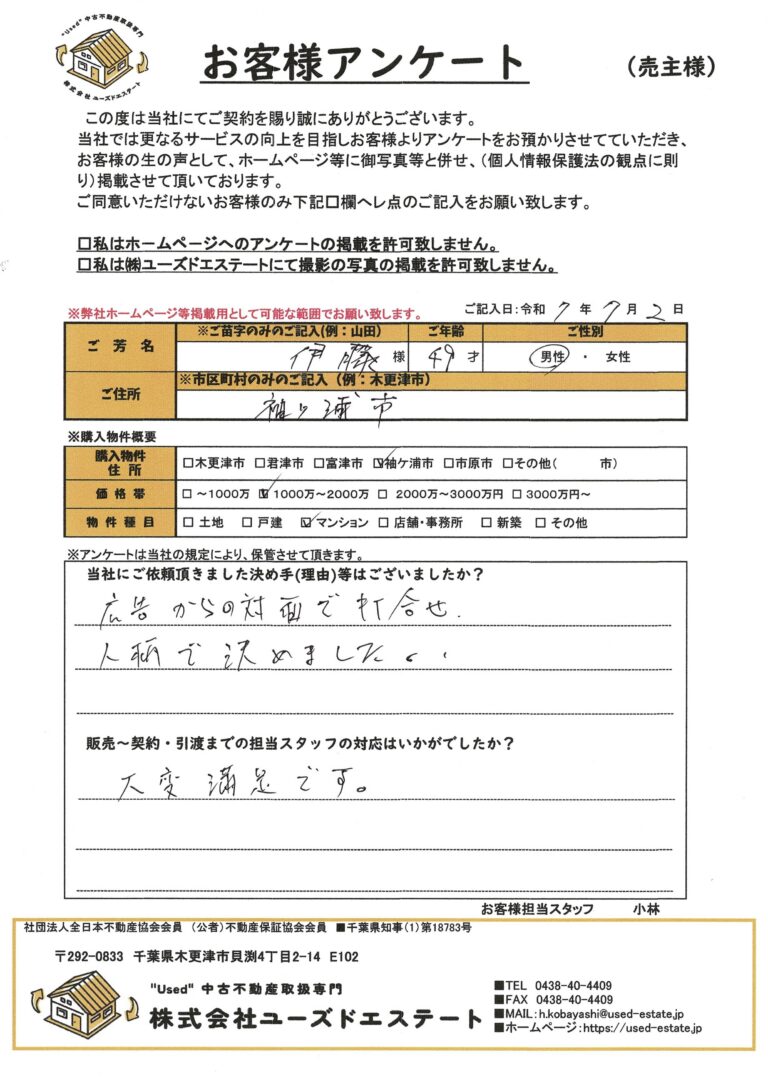 "Used" 中古不動産取扱専門
株式会社ユーズドエステート
お客様アンケート
（売主様）
この度は当社にてご契約を賜り誠にありがとうございます。
当社では更なるサービスの向上を目指しお客様よりアンケートをお預かりさせてていただき、
お客様の生の声として、ホームページ等に御写真等と併せ、（個人情報保護法の観点に則
り）掲載させて頂いております。
ご同意いただけないお客様のみ下記口欄へレ点のご記入をお願い致します。
□私はホームページへのアンケートの掲載を許可致しません。
□私は㈱ユーズドエステートにて撮影の写真の掲載を許可致しません。
※弊社ホームページ等掲載用として可能な範囲でお願い致します。
ご記入日：令和 7 年 7 月 2 日
ご芳名 ※ご苗字のみのご記入(例：山田) ご年齢 ご性別
伊藤 様 49 才 男性 ・ 女性
ご住所 ※市区町村のみのご記入（例：木更津市）
袖ヶ浦市
※購入物件概要
購入物件住所 □木更津市 □君津市 □富津市 ☑袖ケ浦市 □市原市 □その他（ 市）
価格帯 □ ～1000万 ☑ 1000万～2000万 □ 2000万～3000万円 □ 3000万円～
物件種目 □ 土地 □ 戸建 ☑ マンション □ 店舗・事務所 □ 新築 □ その他
※アンケートは当社の規定により、保管させて頂きます。
当社にご依頼頂きました決め手(理由)等はございましたか？
広告からの対面で打合せ.
人柄で決めました。
販売～契約・引渡までの担当スタッフの対応はいかがでしたか？
大変満足です。
お客様担当スタッフ 小林
社団法人全日本不動産協会会員 （公者）不動産保証協会会員 ■千葉県知事（1）第18783号
〒292-0833 千葉県木更津市貝渕4丁目2-14 E102
"Used" 中古不動産取扱専門
株式会社ユーズドエステート
■TEL 0438-40-4409
■FAX 0438-40-4409
■MAIL：h.kobayashi@used-estate.jp
■ホームページ：https://used-estate.jp